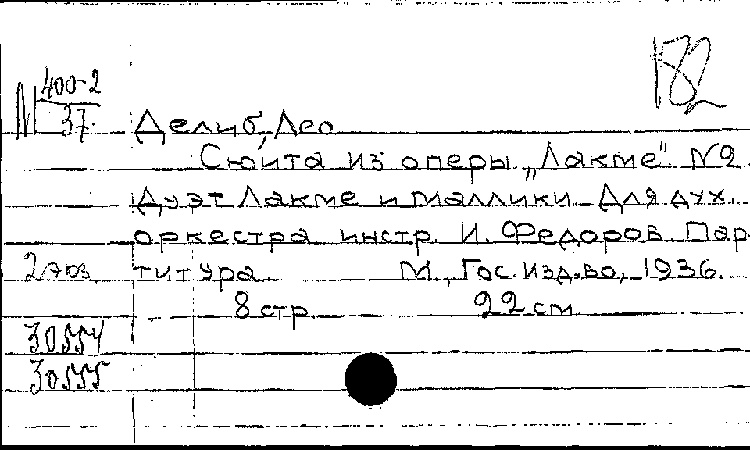 182
М 400-2
37.
Делиб, Лео
Сюита из оперы „Лакме" №2.
Дуэт Лакме и Маллики. Для дух.
оркестра инстр. И. Федоров. Пар-
2 экз. титура. М., Гос. изд-во, 1936.
8 стр. 22 см.
30554
30555